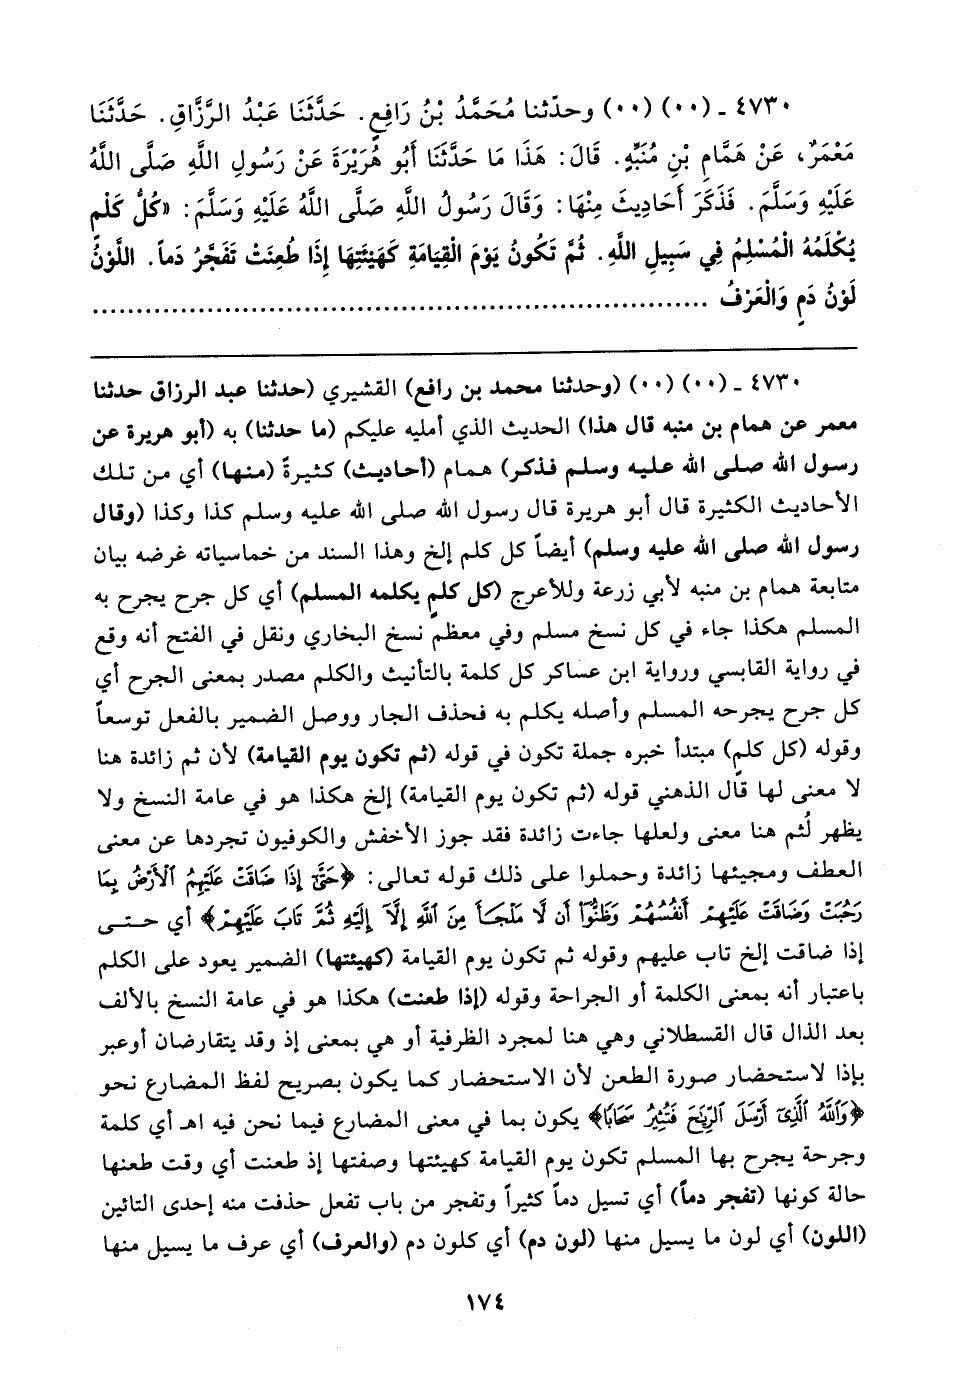 ٤٧٣٠ ـ (٠٠) (٠٠) وحدّثنا مُحَمَّدُ بْنُ رَافِعٍ. حَدَّثَنَا عَبْدُ الرَّزَّاقِ. حَدَّثَنَا
مَعْمَرٌ، عَنْ هَمَّامِ بْنِ مُنَبِّهٍ. قَالَ: هَذَا مَا حَدَّثَنَا أَبُو هُرَيْرَةَ عَنْ رَسُولِ اللَّهِ صَلَّى اللَّهُ
عَلَيْهِ وَسَلَّمَ. فَذَكَرَ أَحَادِيثَ مِنْهَا: وَقَالَ رَسُولُ اللَّهِ صَلَّى اللَّهُ عَلَيْهِ وَسَلَّمَ: «كُلُّ كَلْمٍ
يُكْلَمُهُ الْمُسْلِمُ فِي سَبِيلِ اللَّهِ. ثُمَّ تَكُونُ يَوْمَ الْقِيَامَةِ كَهَيْئَتِهَا إِذَا طُعِنَتْ تَفَجَّرُ دَماً. اللَّوْنُ
لَوْنُ دَمٍ وَالْعَرْفُ ....................................................................
٤٧٣٠ ـ (٠٠) (٠٠) (وحدثنا محمد بن رافع) القشيري (حدثنا عبد الرزاق حدثنا
معمر عن همام بن منبه قال هذا) الحديث الذي أمليه عليكم (ما حدثنا) به (أبو هريرة عن
رسول الله صلى الله عليه وسلم فذكر) همام (أحاديث) كثيرةً (منها) أي من تلك
الأحاديث الكثيرة قال أبو هريرة قال رسول الله صلى الله عليه وسلم كذا وكذا (وقال
رسول الله صلى الله عليه وسلم) أيضاً كل كلم إلخ وهذا السند من خماسياته غرضه بيان
متابعة همام بن منبه لأبي زرعة وللأعرج (كل كلمٍ يكلمه المسلم) أي كل جرح يجرح به
المسلم هكذا جاء في كل نسخ مسلم وفي معظم نسخ البخاري ونقل في الفتح أنه وقع
في رواية القابسي ورواية ابن عساكر كل كلمة بالتأنيث والكلم مصدر بمعنى الجرح أي
كل جرح يجرحه المسلم وأصله يكلم به فحذف الجار ووصل الضمير بالفعل توسعاً
وقوله (كل كلمٍ) مبتدأ خبره جملة تكون في قوله (ثم تكون يوم القيامة) لأن ثم زائدة هنا
لا معنى لها قال الذهني قوله (ثم تكون يوم القيامة) إلخ هكذا هو في عامة النسخ ولا
يظهر لُثم هنا معنى ولعلها جاءت زائدة فقد جوز الأخفش والكوفيون تجردها عن معنى
العطف ومجيئها زائدة وحملوا على ذلك قوله تعالى: ﴿حَتَّىٰ إِذَا ضَاقَتْ عَلَيْهِمُ ٱلْأَرْضُ بِمَا
رَحُبَتْ وَضَاقَتْ عَلَيْهِمْ أَنفُسُهُمْ وَظَنُّوٓا۟ أَن لَّا مَلْجَأَ مِنَ ٱللَّهِ إِلَّآ إِلَيْهِ ثُمَّ تَابَ عَلَيْهِمْ﴾ أي حتى
إذا ضاقت إلخ تاب عليهم وقوله ثم تكون يوم القيامة (كهيئتها) الضمير يعود على الكلم
باعتبار أنه بمعنى الكلمة أو الجراحة وقوله (إذا طعنت) هكذا هو في عامة النسخ بالألف
بعد الذال قال القسطلاني وهي هنا لمجرد الظرفية أو هي بمعنى إذ وقد يتقارضان أوعبر
بإذا لاستحضار صورة الطعن لأن الاستحضار كما يكون بصريح لفظ المضارع نحو
﴿وَٱللَّهُ ٱلَّذِىٓ أَرْسَلَ ٱلرِّيَٰحَ فَتُثِيرُ سَحَابًا﴾ يكون بما في معنى المضارع فيما نحن فيه اهـ أي كلمة
وجرحة يجرح بها المسلم تكون يوم القيامة كهيئتها وصفتها إذ طعنت أي وقت طعنها
حالة كونها (تفجر دماً) أي تسيل دماً كثيراً وتفجر من باب تفعل حذفت منه إحدى التائين
(اللون) أي لون ما يسيل منها (لون دم) أي كلون دم (والعرف) أي عرف ما يسيل منها
١٧٤